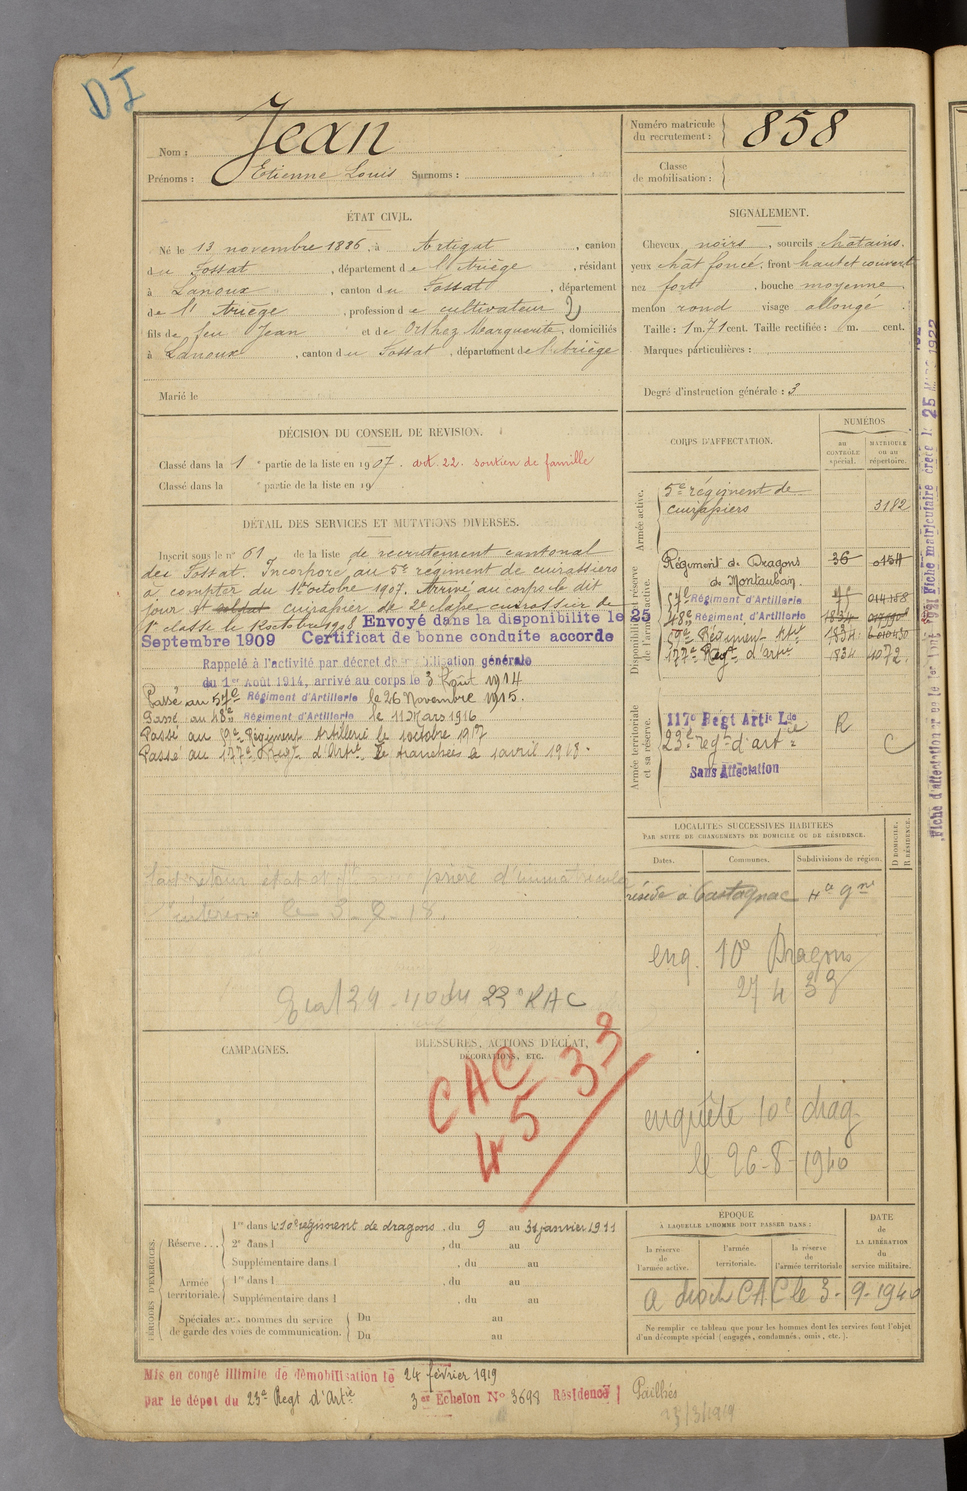 DI
Nom : Jean
Prénoms : Etienne Louis Surnoms :
Numéro matricule du recrutement : 858
Classe de mobilisation :
ÉTAT CIVIL.
Né le 13 novembre 1886, à Artigat, canton
du Fossat, département de l'Ariège, résidant
à Lanoux, canton du Fossat, département
de l'Ariège, profession de cultivateur 2
fils de feu Jean et de Orthez Marguerite, domiciliés
à Lanoux, canton du Fossat, département de l'Ariège
Marié le
SIGNALEMENT.
Cheveux noirs, sourcils châtains,
yeux chât foncé, front haut et couvert
nez fort, bouche moyenne,
menton rond visage allongé
Taille : 1 m. 71 cent. Taille rectifiée : m. cent.
Marques particulières :
Degré d'instruction générale : 3
DÉCISION DU CONSEIL DE REVISION.
Classé dans la 1e partie de la liste en 1907. art. 22. soutien de famille
Classé dans la e partie de la liste en 19
DÉTAIL DES SERVICES ET MUTATIONS DIVERSES.
Inscrit sous le n° 61 de la liste de recrutement cantonal
du Fossat. Incorporé au 5e régiment de cuirassiers
à compter du 1er octobre 1907. Arrivé au corps le dit
jour et soldat cuirassier de 2e classe cuirassier de
1e classe le 1 octobre 1908 Envoyé dans la disponibilité le 25
Septembre 1909 Certificat de bonne conduite accordé
Rappelé à l'activité par décret de mobilisation générale
du 1er Août 1914, arrivé au corps le 3 Août 1914
Passé au 57e Régiment d'Artillerie le 26 Novembre 1915.
Passé au 48e Régiment d'Artillerie le 11 Mars 1916
Passé au Régiment Artillerie le 1 octobre 1917
Passé au 177e Regt d'Artie de tranchées le 1 avril 1918.
le 3-9-18.
39-40 du 23e RAC
CORPS D'AFFECTATION.
NUMÉROS
au CONTRÔLE spécial.
MATRICULE ou au répertoire.
Armée active.
5e régiment de
cuirassiers 3182
Disponibilité et réserve de l'armée active.
Régiment de Dragons 36
de Montauban.
57e Régiment d'Artillerie
48e Régiment d'Artillerie 1834
Régiment Artie 1834
177e Regt d'artie 1834 4072.
Armée territoriale et sa réserve.
117e Régt Artie Lde R
23e regt d'artie C
Sans Affectation
Fiche matriculaire créée le 25 MARS 1922
LOCALITÉS SUCCESSIVES HABITÉES
PAR SUITE DE CHANGEMENTS DE DOMICILE OU DE RÉSIDENCE.
Dates. Communes. Subdivisions de région. D DOMICILE. R RÉSIDENCE.
réside à Castagnac
enq. 10e Dragons
27 4 33
enquête 10e drag
le 26-8-1940
CAMPAGNES.
BLESSURES, ACTIONS D'ÉCLAT,
DÉCORATIONS, ETC.
CAC
4 5 33
PÉRIODES D'EXERCICES.
Réserve . . .
1re dans le 10e régiment de dragons, du 9 au 31 janvier 1911
2e dans l , du au
Supplémentaire dans l , du au
Armée territoriale.
1re dans l , du au
Supplémentaire dans l , du au
Spéciales aux hommes du service de garde des voies de communication.
Du au
Du au
ÉPOQUE
À LAQUELLE L'HOMME DOIT PASSER DANS :
la réserve de l'armée active.
l'armée territoriale.
la réserve de l'armée territoriale
DATE de LA LIBÉRATION du service militaire.
a droit CAC le 3-9-1940
Ne remplir ce tableau que pour les hommes dont les services font l'objet
d'un décompte spécial (engagés, condamnés, omis, etc.).
Mis en congé illimité de démobilisation le 24 février 1919
par le dépôt du 23e Regt d'Artie 3e Echelon N° 3698 Résidence Pailhès